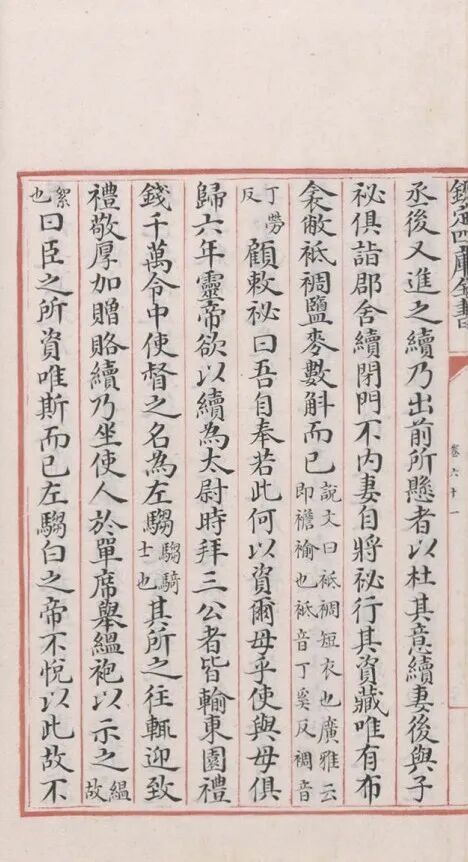 欽定四庫全書
卷六十一
丞後又進之續乃出前所懸者以杜其意續妻後與子
祕俱詣郡舍續閉門不內妻自將祕行其資藏唯有布
衾敝袛裯鹽麥數斛而已說文曰袛裯短衣也廣雅云即襜褕也袛音丁奚反裯音
丁勞反顧敕祕曰吾自奉若此何以資爾母乎使與母俱
歸六年靈帝欲以續為太尉時拜三公者皆輸東園禮
錢千萬令中使督之名為左騶騶騎士也其所之往輒迎致
禮敬厚加贈賂續乃坐使人於單席舉縕袍以示之縕故
絮也曰臣之所資唯斯而已左騶白之帝不悅以此故不